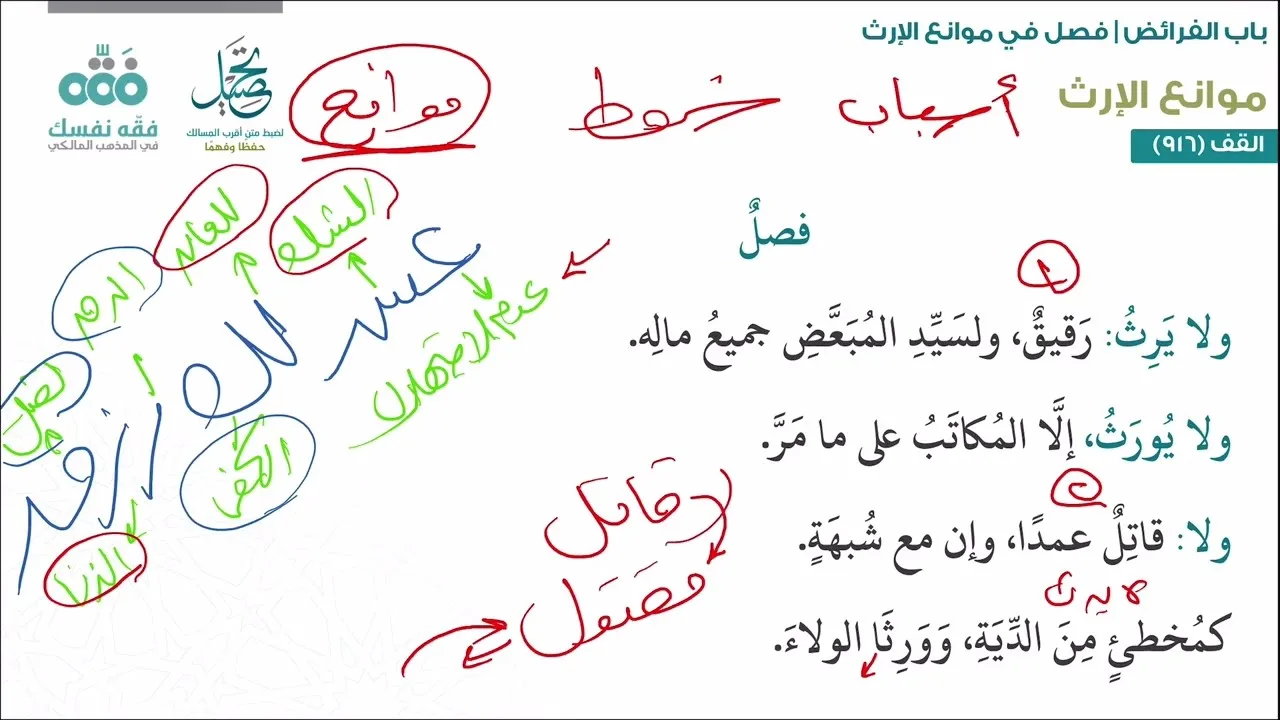 باب الفرائض | فصل في موانع الإرث
موانع الإرث
القف (٩١٦)
تحصيل
لضبط متن أقرب المسالك
حفظًا وفهمًا
فقّه
فقّه نفسك
في المذهب المالكي
أسباب شروط موانع
فصلٌ
١
ولا يَرِثُ: رَقيقٌ، ولسَيِّدِ المُبَعَّضِ جميعُ مالِه.
ولا يُورَثُ، إلَّا المُكاتَبُ على ما مَرَّ.
٢
ولا: قاتِلٌ عمدًا، وإن مع شُبهَةٍ.
لا يرث
كمُخطئٍ مِنَ الدِّيَةِ، وَوَرِثَا الولاءَ.
قاتل
مقتول
عش لك رزق
عدم الاستهلال
الشك
اللعان
الكفر
الرق
الزنا
القتل